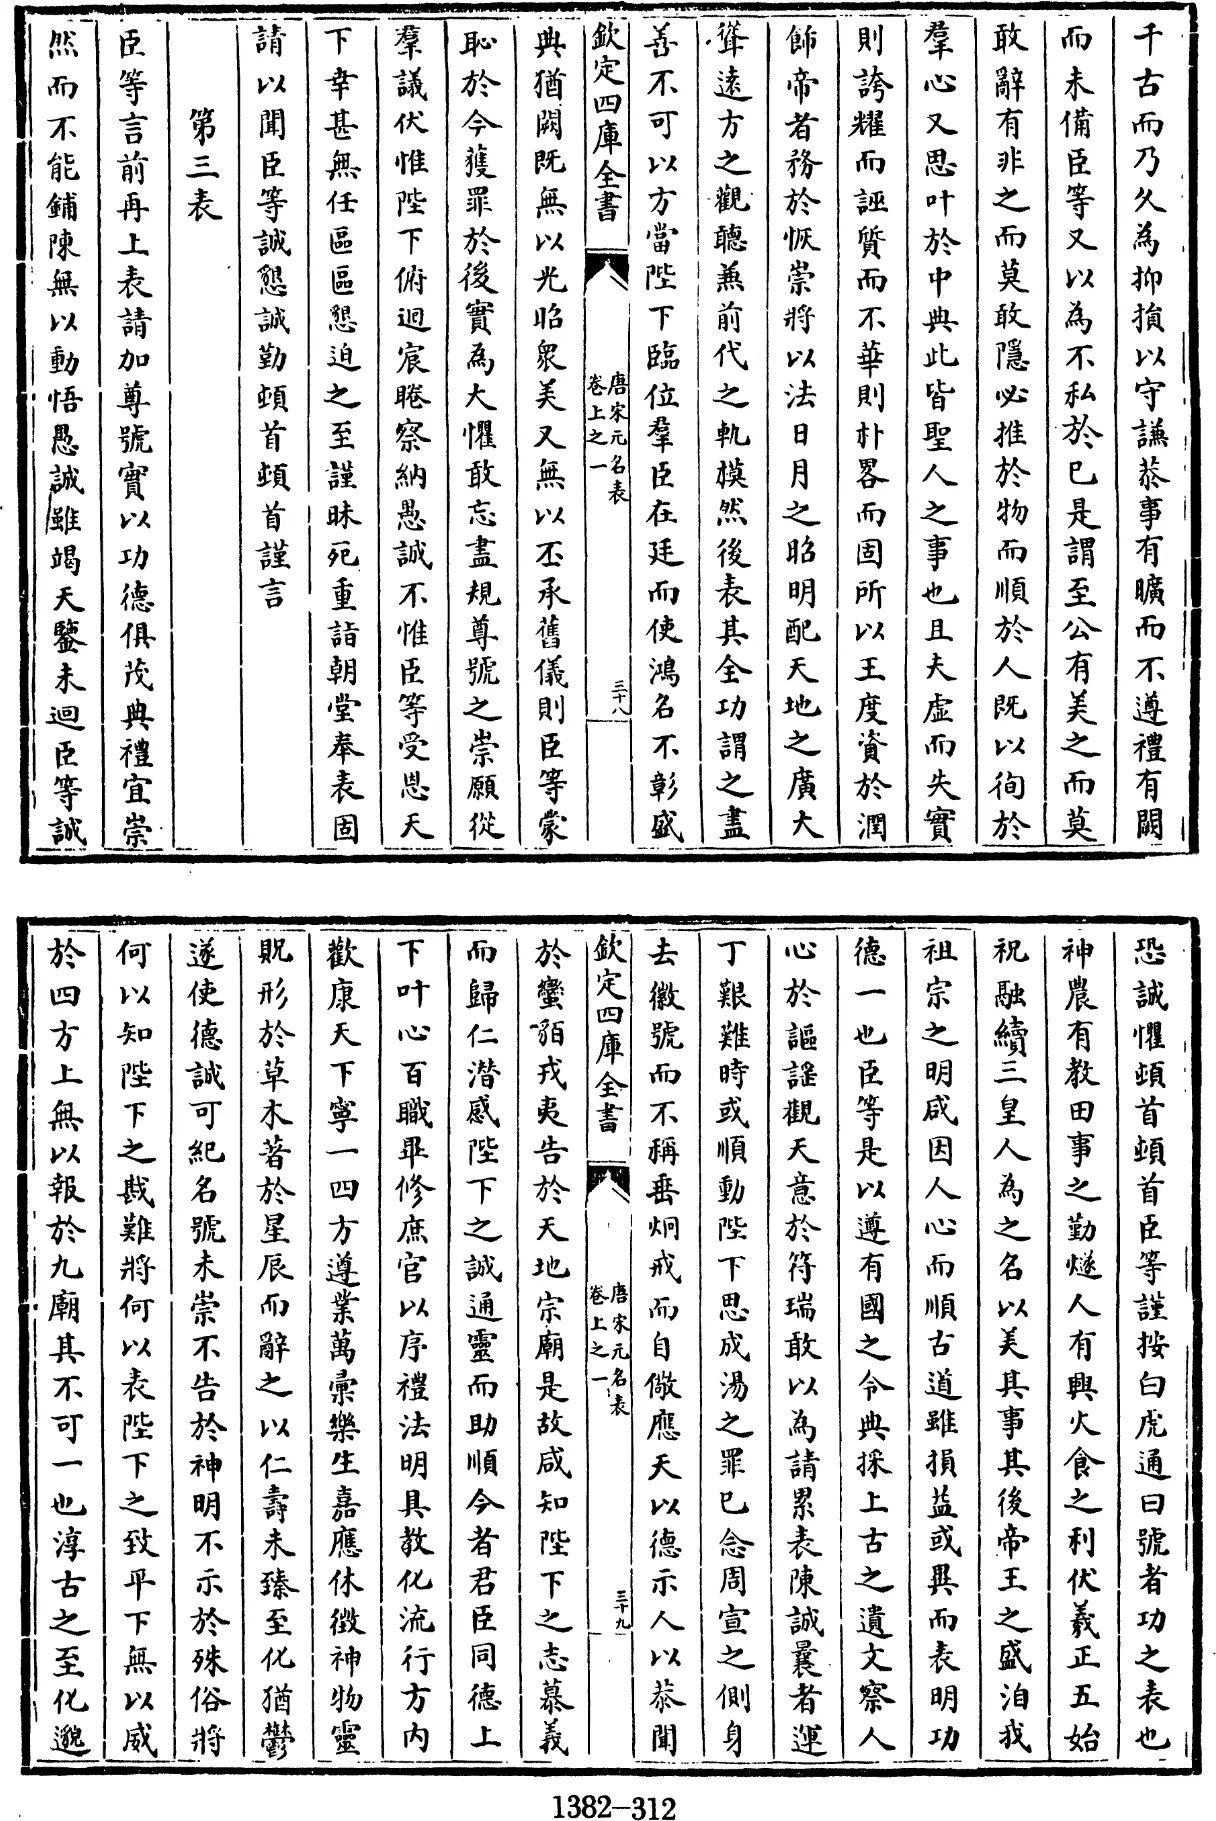 千古而乃久為抑損以守謙恭事有曠而不遵禮有闕
而未備臣等又以為不私於己是謂至公有美之而莫
敢辭有非之而莫敢隱必推於物而順於人既以徇於
羣心又思叶於中典此皆聖人之事也且夫虛而失實
則誇耀而誣質而不華則朴畧而固所以王度資於潤
飾帝者務於恢崇將以法日月之昭明配天地之廣大
聳遠方之觀聽兼前代之軌模然後表其全功謂之盡
善不可以方當陛下臨位羣臣在廷而使鴻名不彰盛
欽定四庫全書
唐宋元名表
卷上之一
三十八
典猶闕既無以光昭衆美又無以丕承舊儀則臣等蒙
恥於今獲罪於後實為大懼敢忘盡規尊號之崇願從
羣議伏惟陛下俯迴宸睠察納愚誠不惟臣等受恩天
下幸甚無任區區懇迫之至謹昧死重詣朝堂奉表固
請以聞臣等誠懇誠勤頓首頓首謹言
第三表
臣等言前再上表請加尊號實以功德俱茂典禮宜崇
然而不能鋪陳無以動悟愚誠雖竭天鑒未迴臣等誠
恐誠懼頓首頓首臣等謹按白虎通曰號者功之表也
神農有教田事之勤燧人有興火食之利伏羲正五始
祝融續三皇人為之名以美其事其後帝王之盛洎我
祖宗之明咸因人心而順古道雖損益或異而表明功
德一也臣等是以遵有國之令典採上古之遺文察人
心於謳謠觀天意於符瑞敢以為請累表陳誠曩者運
丁艱難時或順動陛下思成湯之罪已念周宣之側身
去徽號而不稱垂炯戒而自儆應天以德示人以恭聞
欽定四庫全書
唐宋元名表
卷上之一
三十九
於蠻貊戎夷告於天地宗廟是故咸知陛下之志慕義
而歸仁潛感陛下之誠通靈而助順今者君臣同德上
下叶心百職畢修庶官以序禮法明具教化流行方內
歡康天下寧一四方遵業萬彙樂生嘉應休徵神物靈
貺形於草木著於星辰而辭之以仁壽未臻至化猶鬱
遂使德誠可紀名號未崇不告於神明不示於殊俗將
何以知陛下之戡難將何以表陛下之致平下無以威
於四方上無以報於九廟其不可一也淳古之至化邈
1382-312